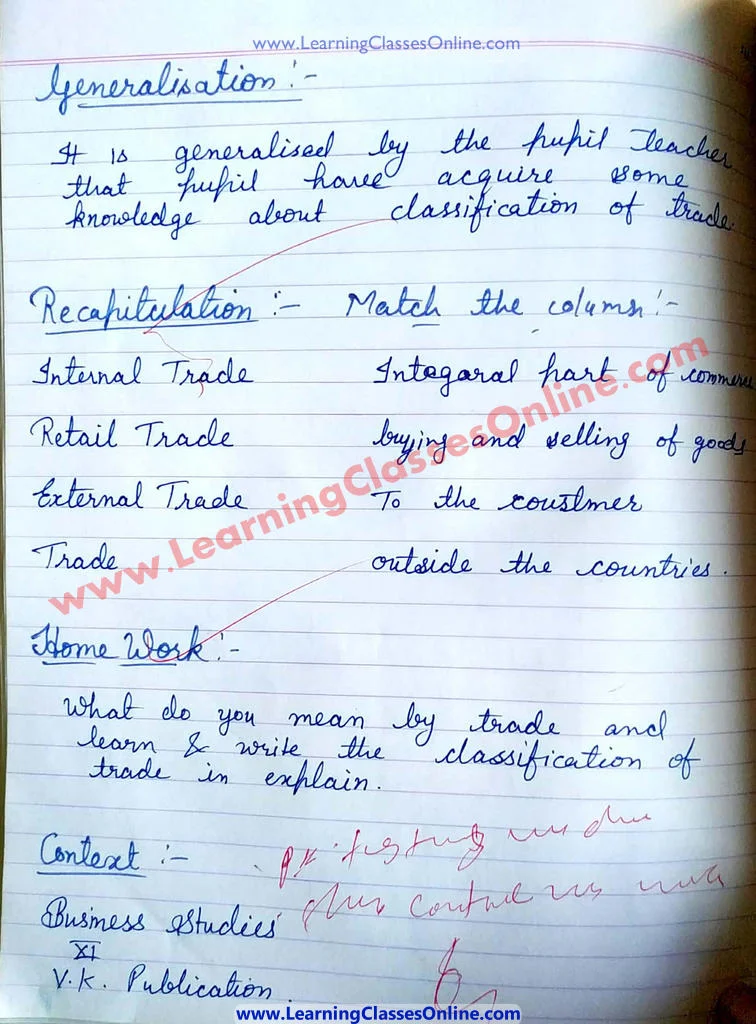 www.LearningClassesOnline.com
Generalisation :-
It is generalised by the pupil Teacher
that pupil have acquire some
knowledge about classification of trade.
Recapitulation :- Match the column :-
Internal Trade Integaral part of commerce
Retail Trade buying and selling of goods
External Trade To the coustmer
Trade outside the countries.
www.LearningClassesOnline.com
Home Work :-
What do you mean by trade and
learn & write the classification of
trade in explain.
Context :-
Business Studies
XI
V.K. Publication.
www.LearningClassesOnline.com